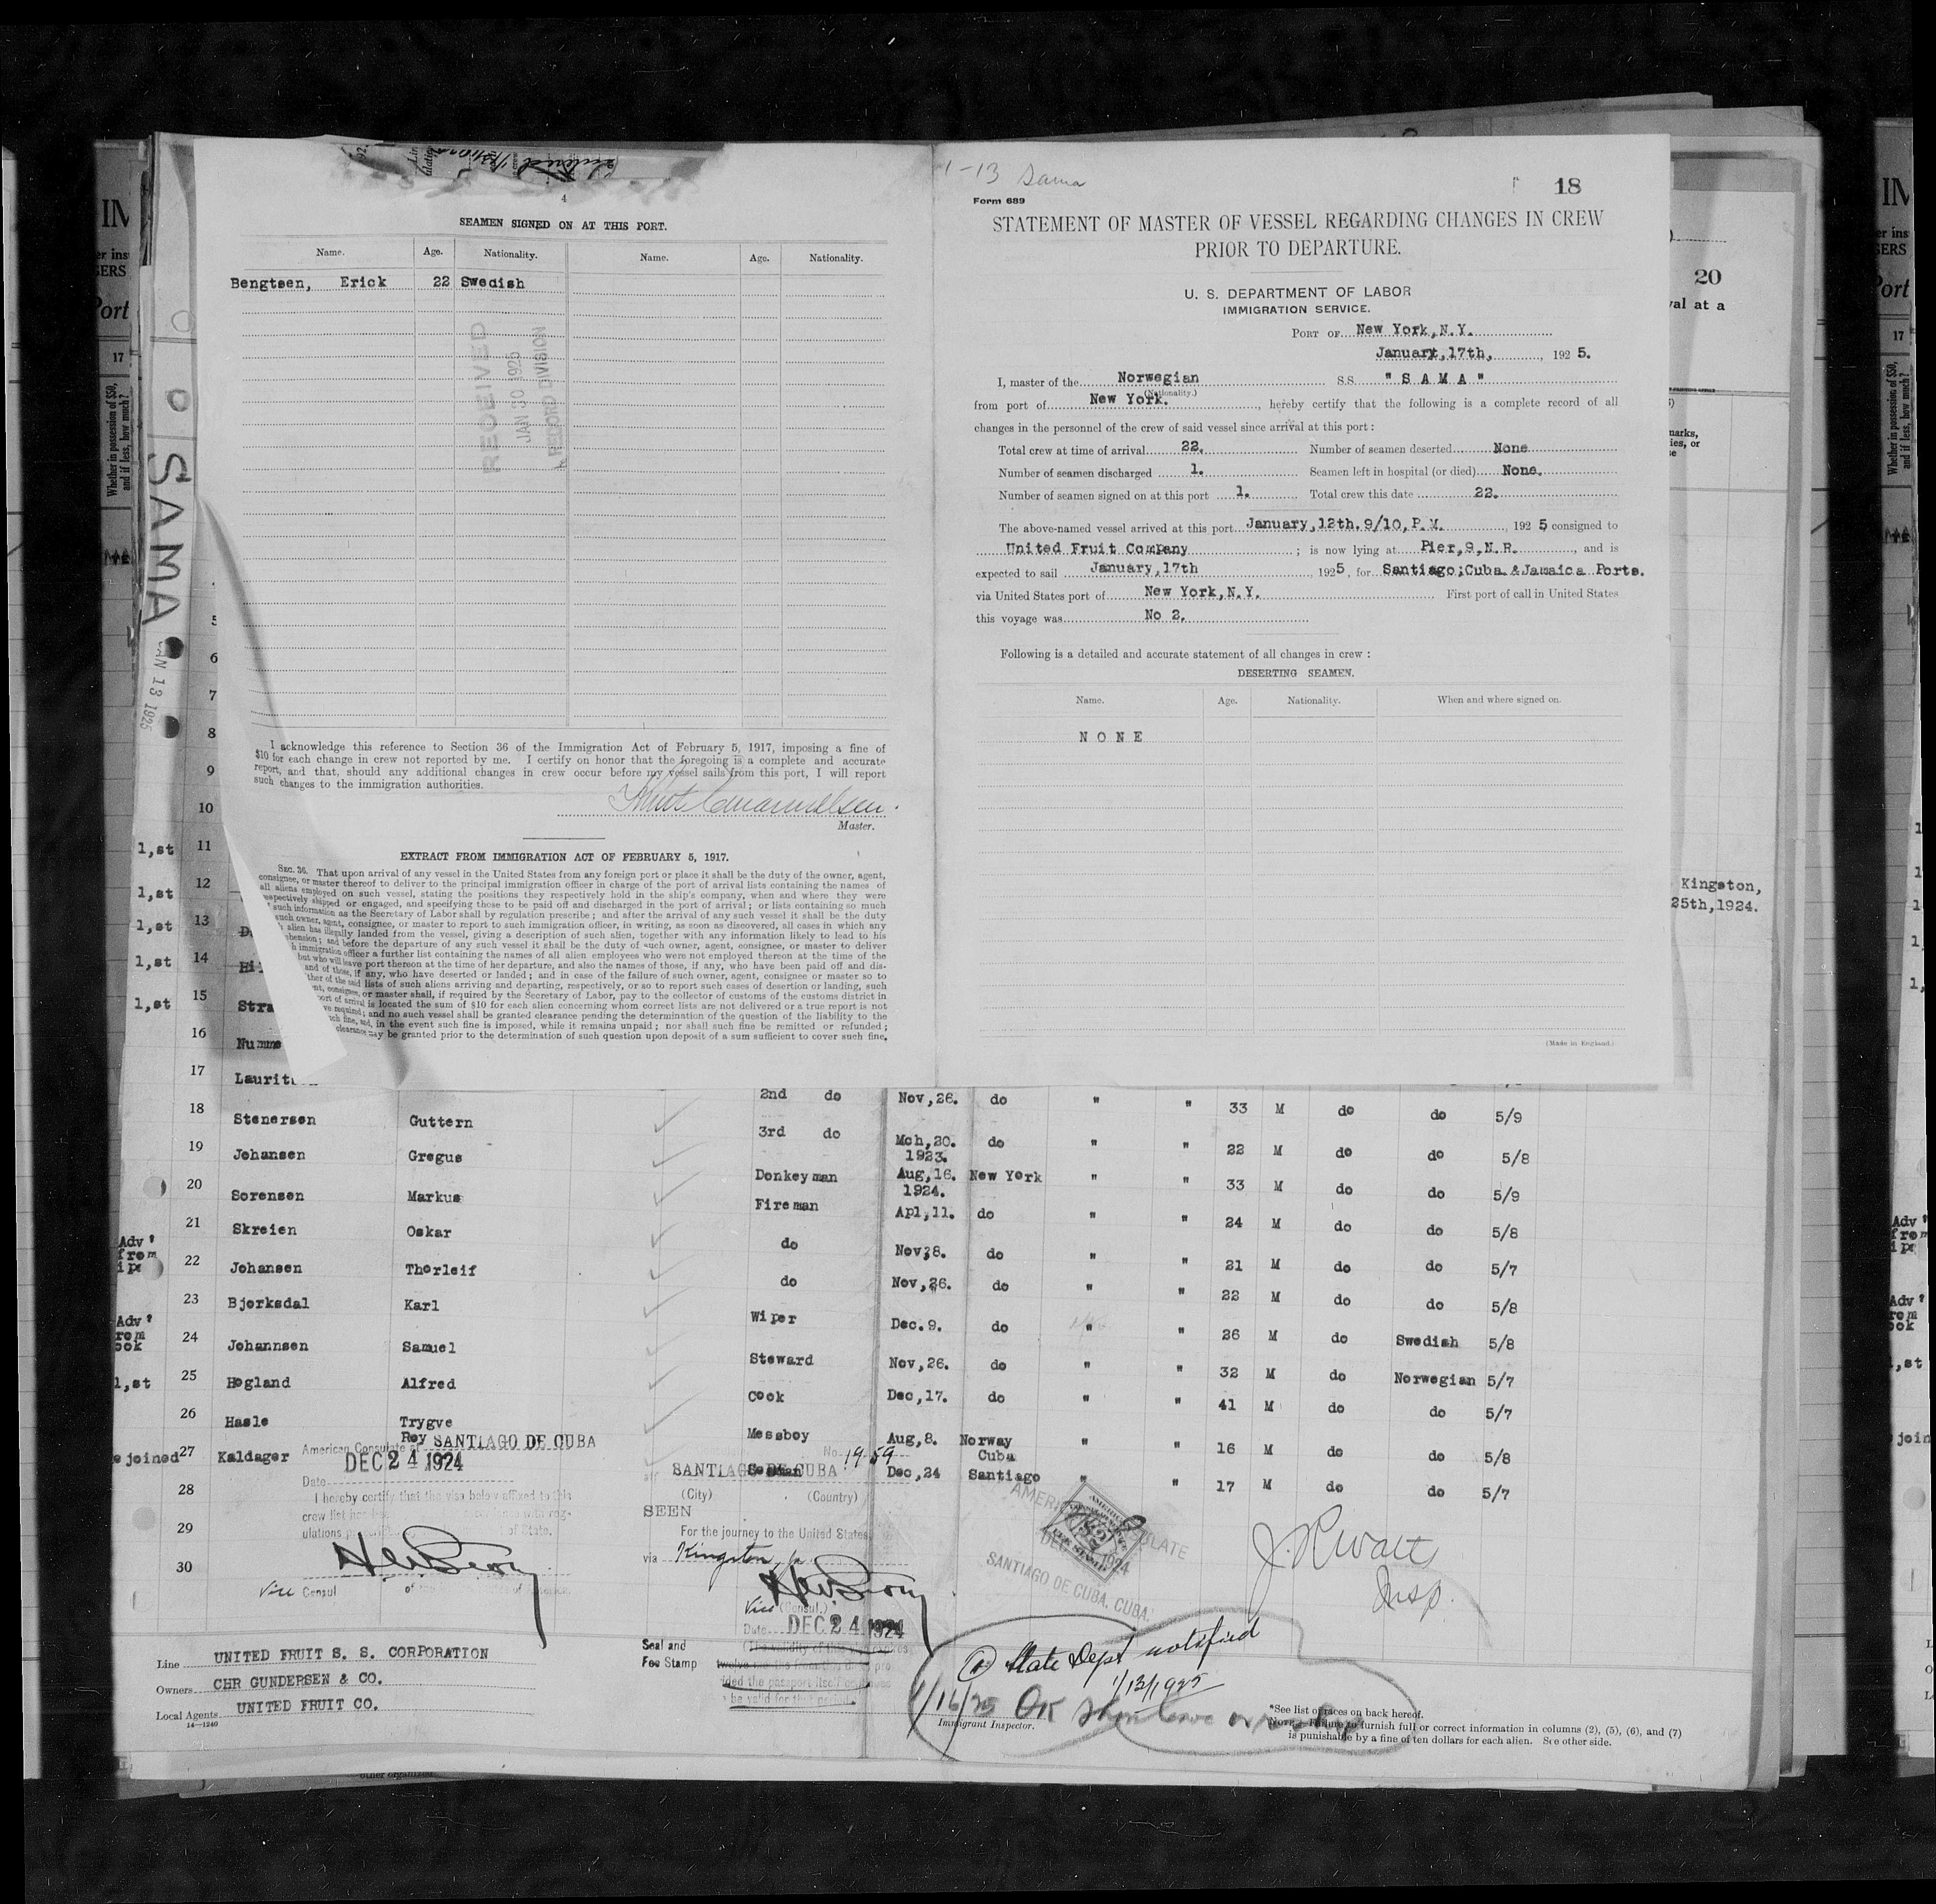 4
SEAMEN SIGNED ON AT THIS PORT.
Name. Age. Nationality. Name. Age. Nationality.
Bengtsen, Erick 22 Swedish
RECEIVED
JAN 30 1925
RECORD DIVISION
I acknowledge this reference to Section 36 of the Immigration Act of February 5, 1917, imposing a fine of
$10 for each change in crew not reported by me. I certify on honor that the foregoing is a complete and accurate
report, and that, should any additional changes in crew occur before my vessel sails from this port, I will report
such changes to the immigration authorities.
Master.
EXTRACT FROM IMMIGRATION ACT OF FEBRUARY 5, 1917.
SEC. 36. That upon arrival of any vessel in the United States from any foreign port or place it shall be the duty of the owner, agent,
consignee, or master thereof to deliver to the principal immigration officer in charge of the port of arrival lists containing the names of
all aliens employed on such vessel, stating the positions they respectively hold in the ship's company, when and where they were
respectively shipped or engaged, and specifying those to be paid off and discharged in the port of arrival; or lists containing so much
such information as the Secretary of Labor shall by regulation prescribe; and after the arrival of any such vessel it shall be the duty
such owner, agent, consignee, or master to report to such immigration officer, in writing, as soon as discovered, all cases in which any
alien has illegally landed from the vessel, giving a description of such alien, together with any information likely to lead to his
hension; and before the departure of any such vessel it shall be the duty of such owner, agent, consignee, or master to deliver
immigration officer a further list containing the names of all alien employees who were not employed thereon at the time of the
but who will leave port thereon at the time of her departure, and also the names of those, if any, who have been paid off and dis-
and of those, if any, who have deserted or landed; and in case of the failure of such owner, agent, consignee or master so to
ther of the said lists of such aliens arriving and departing, respectively, or so to report such cases of desertion or landing, such
nt, consignee, or master shall, if required by the Secretary of Labor, pay to the collector of customs of the customs district in
ort of arrival is located the sum of $10 for each alien concerning whom correct lists are not delivered or a true report is not
required; and no such vessel shall be granted clearance pending the determination of the question of the liability to the
ch fine, and, in the event such fine is imposed, while it remains unpaid; nor shall such fine be remitted or refunded;
clearance may be granted prior to the determination of such question upon deposit of a sum sufficient to cover such fine.
1-13 Sama
18
Form 689
STATEMENT OF MASTER OF VESSEL REGARDING CHANGES IN CREW
PRIOR TO DEPARTURE.
U. S. DEPARTMENT OF LABOR
IMMIGRATION SERVICE.
PORT OF New York, N.Y.
January, 17th, 1925.
I, master of the Norwegian S.S. "SAMA"
(Nationality.)
from port of New York., hereby certify that the following is a complete record of all
changes in the personnel of the crew of said vessel since arrival at this port:
Total crew at time of arrival 22. Number of seamen deserted None
Number of seamen discharged 1. Seamen left in hospital (or died) None.
Number of seamen signed on at this port 1. Total crew this date 22.
The above-named vessel arrived at this port January, 12th. 9/10, P.M., 1925 consigned to
United Fruit Company; is now lying at Pier, 9, N.R., and is
expected to sail January, 17th, 1925, for Santiago; Cuba & Jamaica Ports.
via United States port of New York, N.Y. First port of call in United States
this voyage was No 2.
Following is a detailed and accurate statement of all changes in crew:
DESERTING SEAMEN.
Name. Age. Nationality. When and where signed on.
NONE
(Made in England.)
SAMA
JAN 13 1925
20
val at a
Kingston,
25th, 1924.
17
Whether in possession of $50,
and if less, how much?
5
6
7
8
9
10
1,st 11
1,st 12
1,st 13
1,st 14
1,st 15 Stra
16 Numme
17 Laurit
2nd do Nov, 26. do " " 33 M do do 5/9
18 Stenersen Guttern
3rd do Mch, 20. 1923. do " " 22 M do do 5/8
19 Johansen Gregus
Donkeyman Aug, 16. 1924. New York " " 33 M do do 5/9
20 Sorensen Markus
Fireman Apl, 11. do " " 24 M do do 5/8
21 Skreien Oskar
do Nov; 8. do " " 21 M do do 5/7
22 Johansen Thorleif
do Nov, 26. do " " 22 M do do 5/8
23 Bjorksdal Karl
Wiper Dec. 9. do " " 26 M do Swedish 5/8
24 Johannsen Samuel
Steward Nov, 26. do " " 32 M do Norwegian 5/7
1,st 25 Hogland Alfred
Cook Dec, 17. do " " 41 M do do 5/7
26 Hasle Trygve
Messboy Aug, 8. Norway " " 16 M do do 5/8
e joined 27 Kaldager Roy
Seaman Dec, 24 Cuba Santiago " " 17 M do do 5/7
28
29
30
American Consulate at SANTIAGO DE CUBA
Date DEC 24 1924
I hereby certify that the visa below affixed to this
Vice Consul
No. 1959
SANTIAGO DE CUBA
(City) (Country)
SEEN
For the journey to the United States
via Kingston, Ja
Vice (Consul.)
Date DEC 24 1924
Seal and
Fee Stamp
SANTIAGO DE CUBA, CUBA.
J. R. Watts
Insp.
State Dept notified
1/13/1925
1/16/25 OK
Immigrant Inspector.
Line UNITED FRUIT S. S. CORPORATION
Owners CHR GUNDERSEN & CO.
Local Agents UNITED FRUIT CO.
14-1240
*See list of races on back hereof.
NOTE.—Failure to furnish full or correct information in columns (2), (5), (6), and (7)
is punishable by a fine of ten dollars for each alien. See other side.